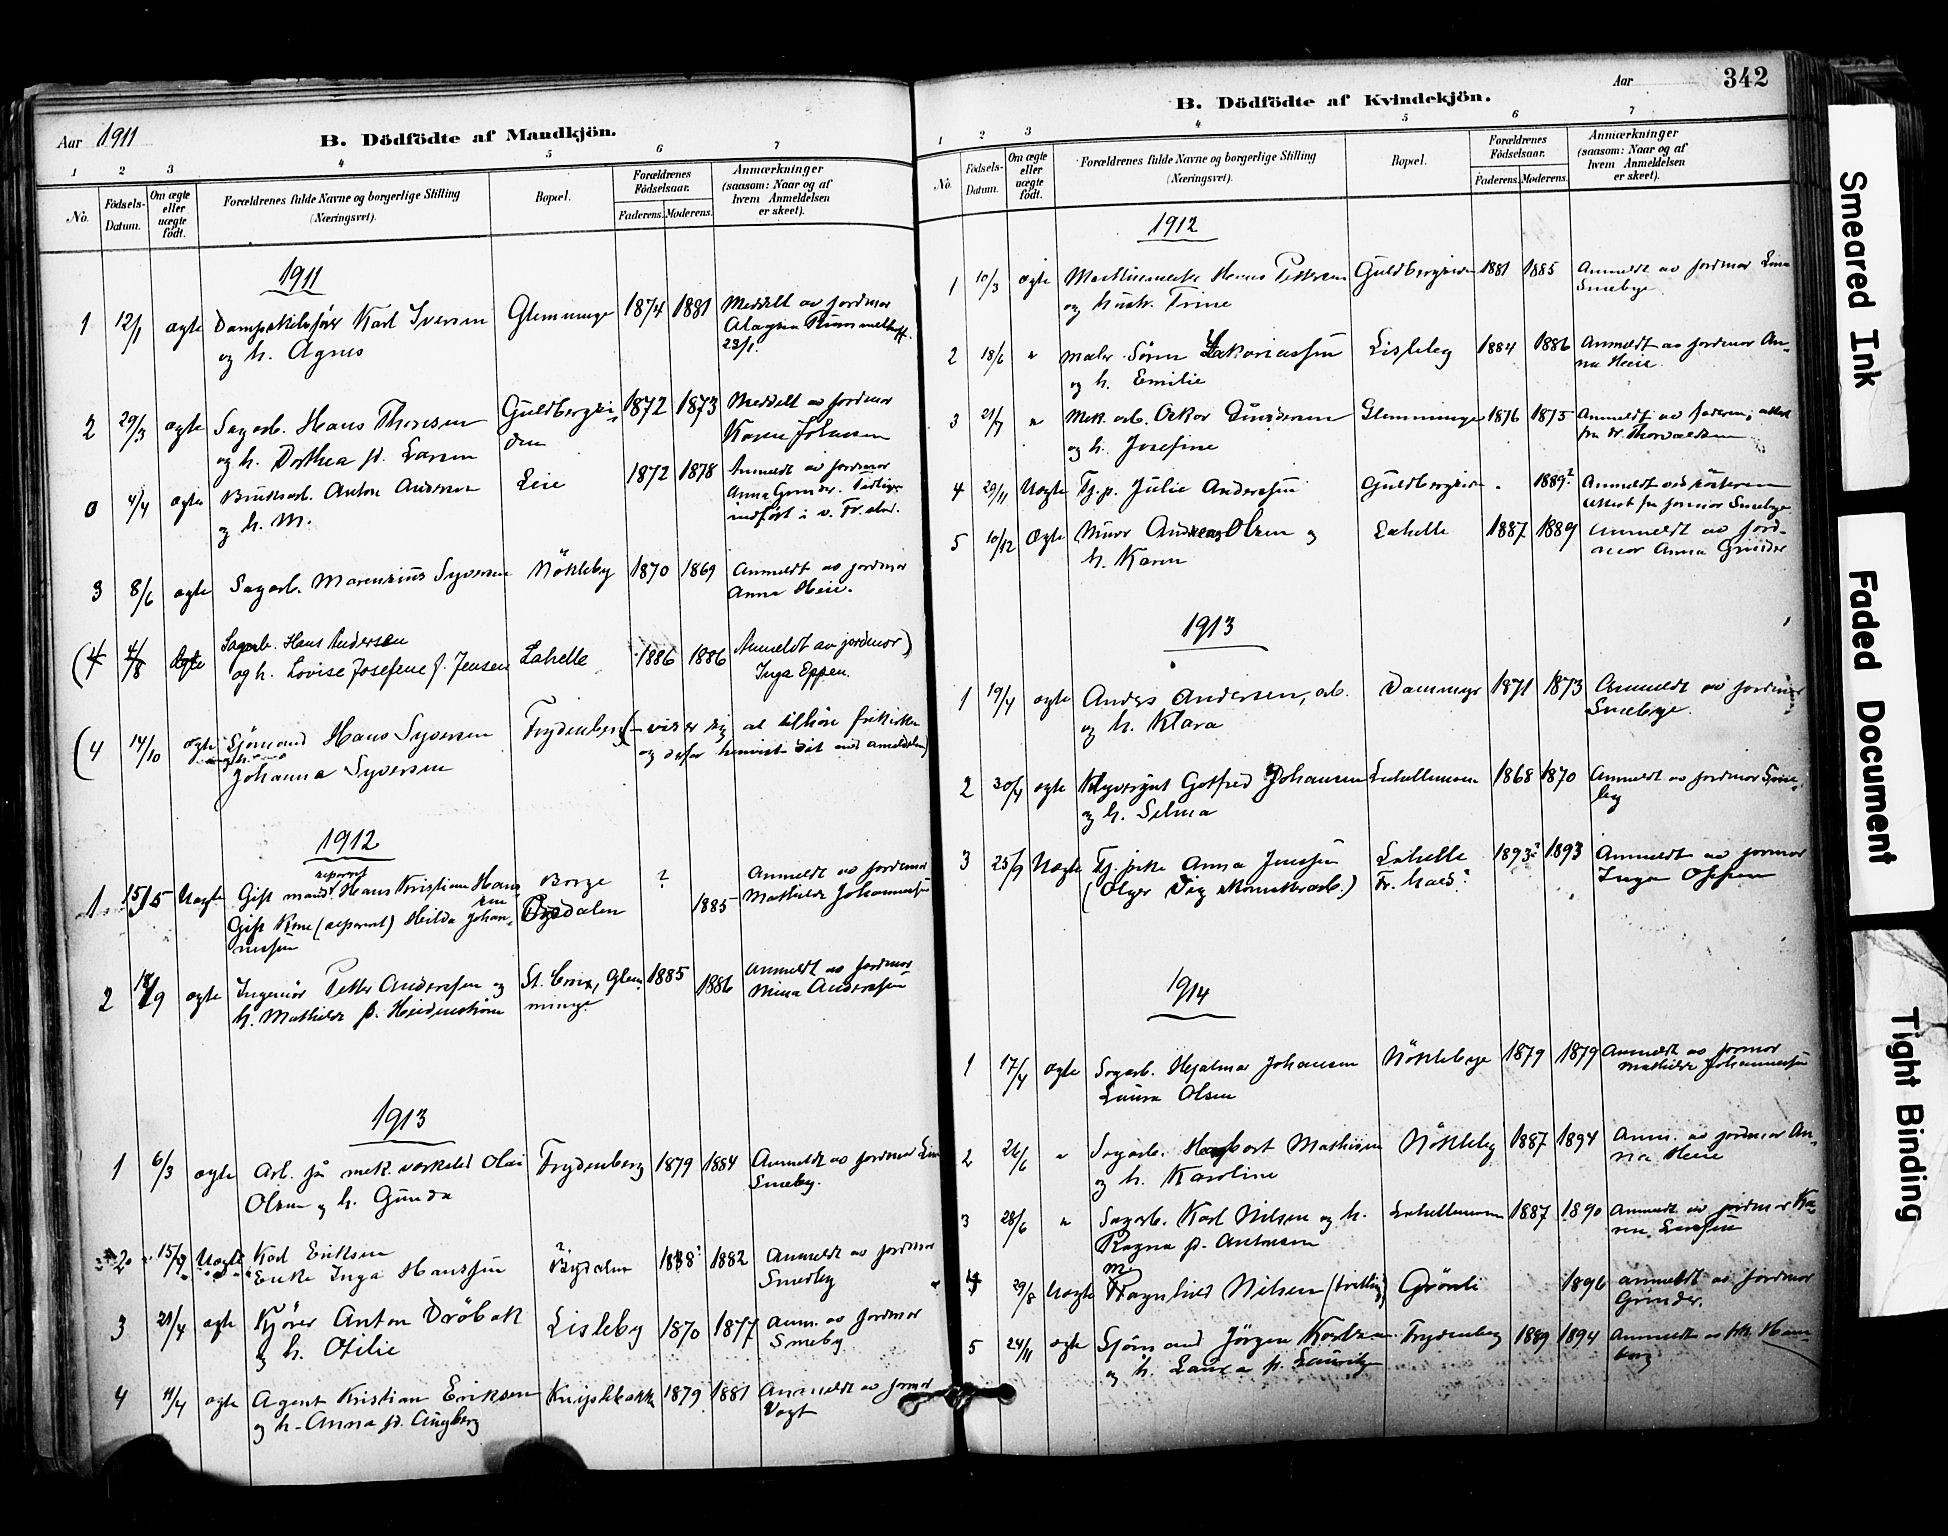 Aar 1911
B. Dödfödte af Mandkjön.
1 2 3 4 5 6 7
No.
Födsels-
Datum.
Om ægte
eller
uægte
födt.
Forældrenes fulde Navne og borgerlige Stilling
(Næringsvei).
Bopæl.
Forældrenes
Födselsaar.
Faderens. Moderens.
Anmærkninger
(saasom: Naar og af
hvem Anmeldelsen
er skeet).
1911
1 12/1 ægte Karl Iversen Glemminge 1874 1881 Meddelt av jordmor
og h. Agnes
23/1.
2 29/3 ægte Sagarb. Hans Thoresen Guldbergsi- 1872 1873 Meddelt av jordmor
og h. Dorthea f. Larsen den Karen Johansen
0 4/4 ægte Bruksarb. Anton Andersen Leie 1872 1878 Anmeldt av jordmor
og h. M. Anna Grinder. Tidligere
indført i v. Fr.stad.
3 8/6 ægte Sagarb. Marensius Syversen Nökleby 1870 1869 Anmeldt av jordmor
Anna Heie.
(4 4/8 ægte Sagarb. Hans Andersen
og h. Lovise Josefine f. Jensen Lahelle 1886 1886 Anmeldt av jordmor)
Inga Eppen.
(4 14/10 ægte Sjömand Hans Syversen Frydenberg (- viser sig at tilhöre frikirken
Johanna Syversen og derfor henvist dit med anmeldelsen)
1912
separert
1 15/5 Uægte Gift mand Hans Kristian Hans Borge ? Anmeldt av jordmor
sen
Gift Kone (separert) Hilda Johan- Bydalen 1885 Mathilde Johannessen
nessen
2 18/9 ægte Ingeniör Petter Anderssen og St. Croix, Glem- 1885 1886 Anmeldt av jordmor
h. Mathilde f. Heidenström minge. Mina Anderssen
1913
1 6/3 ægte Arb. på mek. verksted Olai Frydenberg 1879 1884 Anmeldt av jordmor Lina
Olsen og h. Gunda Smeby.
2 15/9 Uægte Karl Eriksen ?
Enke Inga Hanssen Bydalen 1888? 1882 Anmeldt av jordmor
Smeby
3 21/4 ægte Kjörer Anton Dröbak Lisleby 1870 1877 Anm. av jordmor
og h. Otilie Smeby.
4 11/4 ægte Agent Kristian Eriksen 1879 1881 Anmeldt av jormor
og h. Anna f. Augberg Vogt
Aar 342
B. Dödfödte af Kvindekjön.
1 2 3 4 5 6 7
No.
Födsels-
Datum.
Om ægte
eller
uægte
födt.
Forældrenes fulde Navne og borgerlige Stilling
(Næringsvei).
Bopæl.
Forældrenes
Födselsaar.
Faderens. Moderens.
Anmærkninger
(saasom: Naar og af
hvem Anmeldelsen
er skeet).
1912
1 10/3 ægte Hans Pettersen Guldbergsiden 1881 1885 Anmeldt av jordmor Lina
og hustr. Trine Smebye
2 18/6 " Maler Sören Zakariassen Lisleby 1884 1886 Anmeldt av jordmor An-
og h. Emilie na Heie.
3 21/7 " Mek. arb. Oskar Gundersen Glemminge 1876 1875 Anmeldt av faderen; attest
og h. Josefine fra Dr. Thorvaldsen
4 29/11 Uægte Tj.p. Julie Anderssen Guldbergsiden - 1889? Anmeldt ved søsteren
attest fra jormor Smebye
5 10/12 Ægte Murer Andreas Olsen og Lahelle 1887 1889 Anmeldt av jord-
h. Karen mor Anna Grinder
1913
1 19/4 ægte Anders Andersen, arb. Dammyr 1871 1873 Anmeldt av jordmor
og h. Klara Smebye.
2 30/4 ægte Gotfred Johansen Lahellemoen 1868 1870 Anmeldt av jordmor Sme-
og h. Selma by
3 25/9 Uægte Tj. pike Anna Jenssen Lahelle 1893? 1893 Anmeldt av jormor
Fr.hald? Inga Oppen
1914
1 17/4 ægte Sagarb. Hjalmar Johansen Nöklebye 1879 1879 Anmeldt av jormor
Laura Olsen Mathilde Johannessen
2 26/6 " Sagarb. Herbert Mathisen Nökleby 1887 1894 Anm. av jordmor An-
og h. Karoline na Heie
3 28/6 " Sagarb. Karl Nilsen og h. Lahellemoen 1887 1890 Anmeldt av jordmor Ka-
Ragna f. Antonsen ren Larssen
4 29/8 Uægte Ragnhild Nilsen (tvilling) Grönli 1896 anmeldt av jordmor
Grinder.
5 24/11 ægte Sjömand Jörgen Karlsen Frydenberg 1889 1894 Anmeldt av frk. Ham-
og h. Laura f. Lauritzen borg
Smeared Ink
Faded Document
Tight Binding